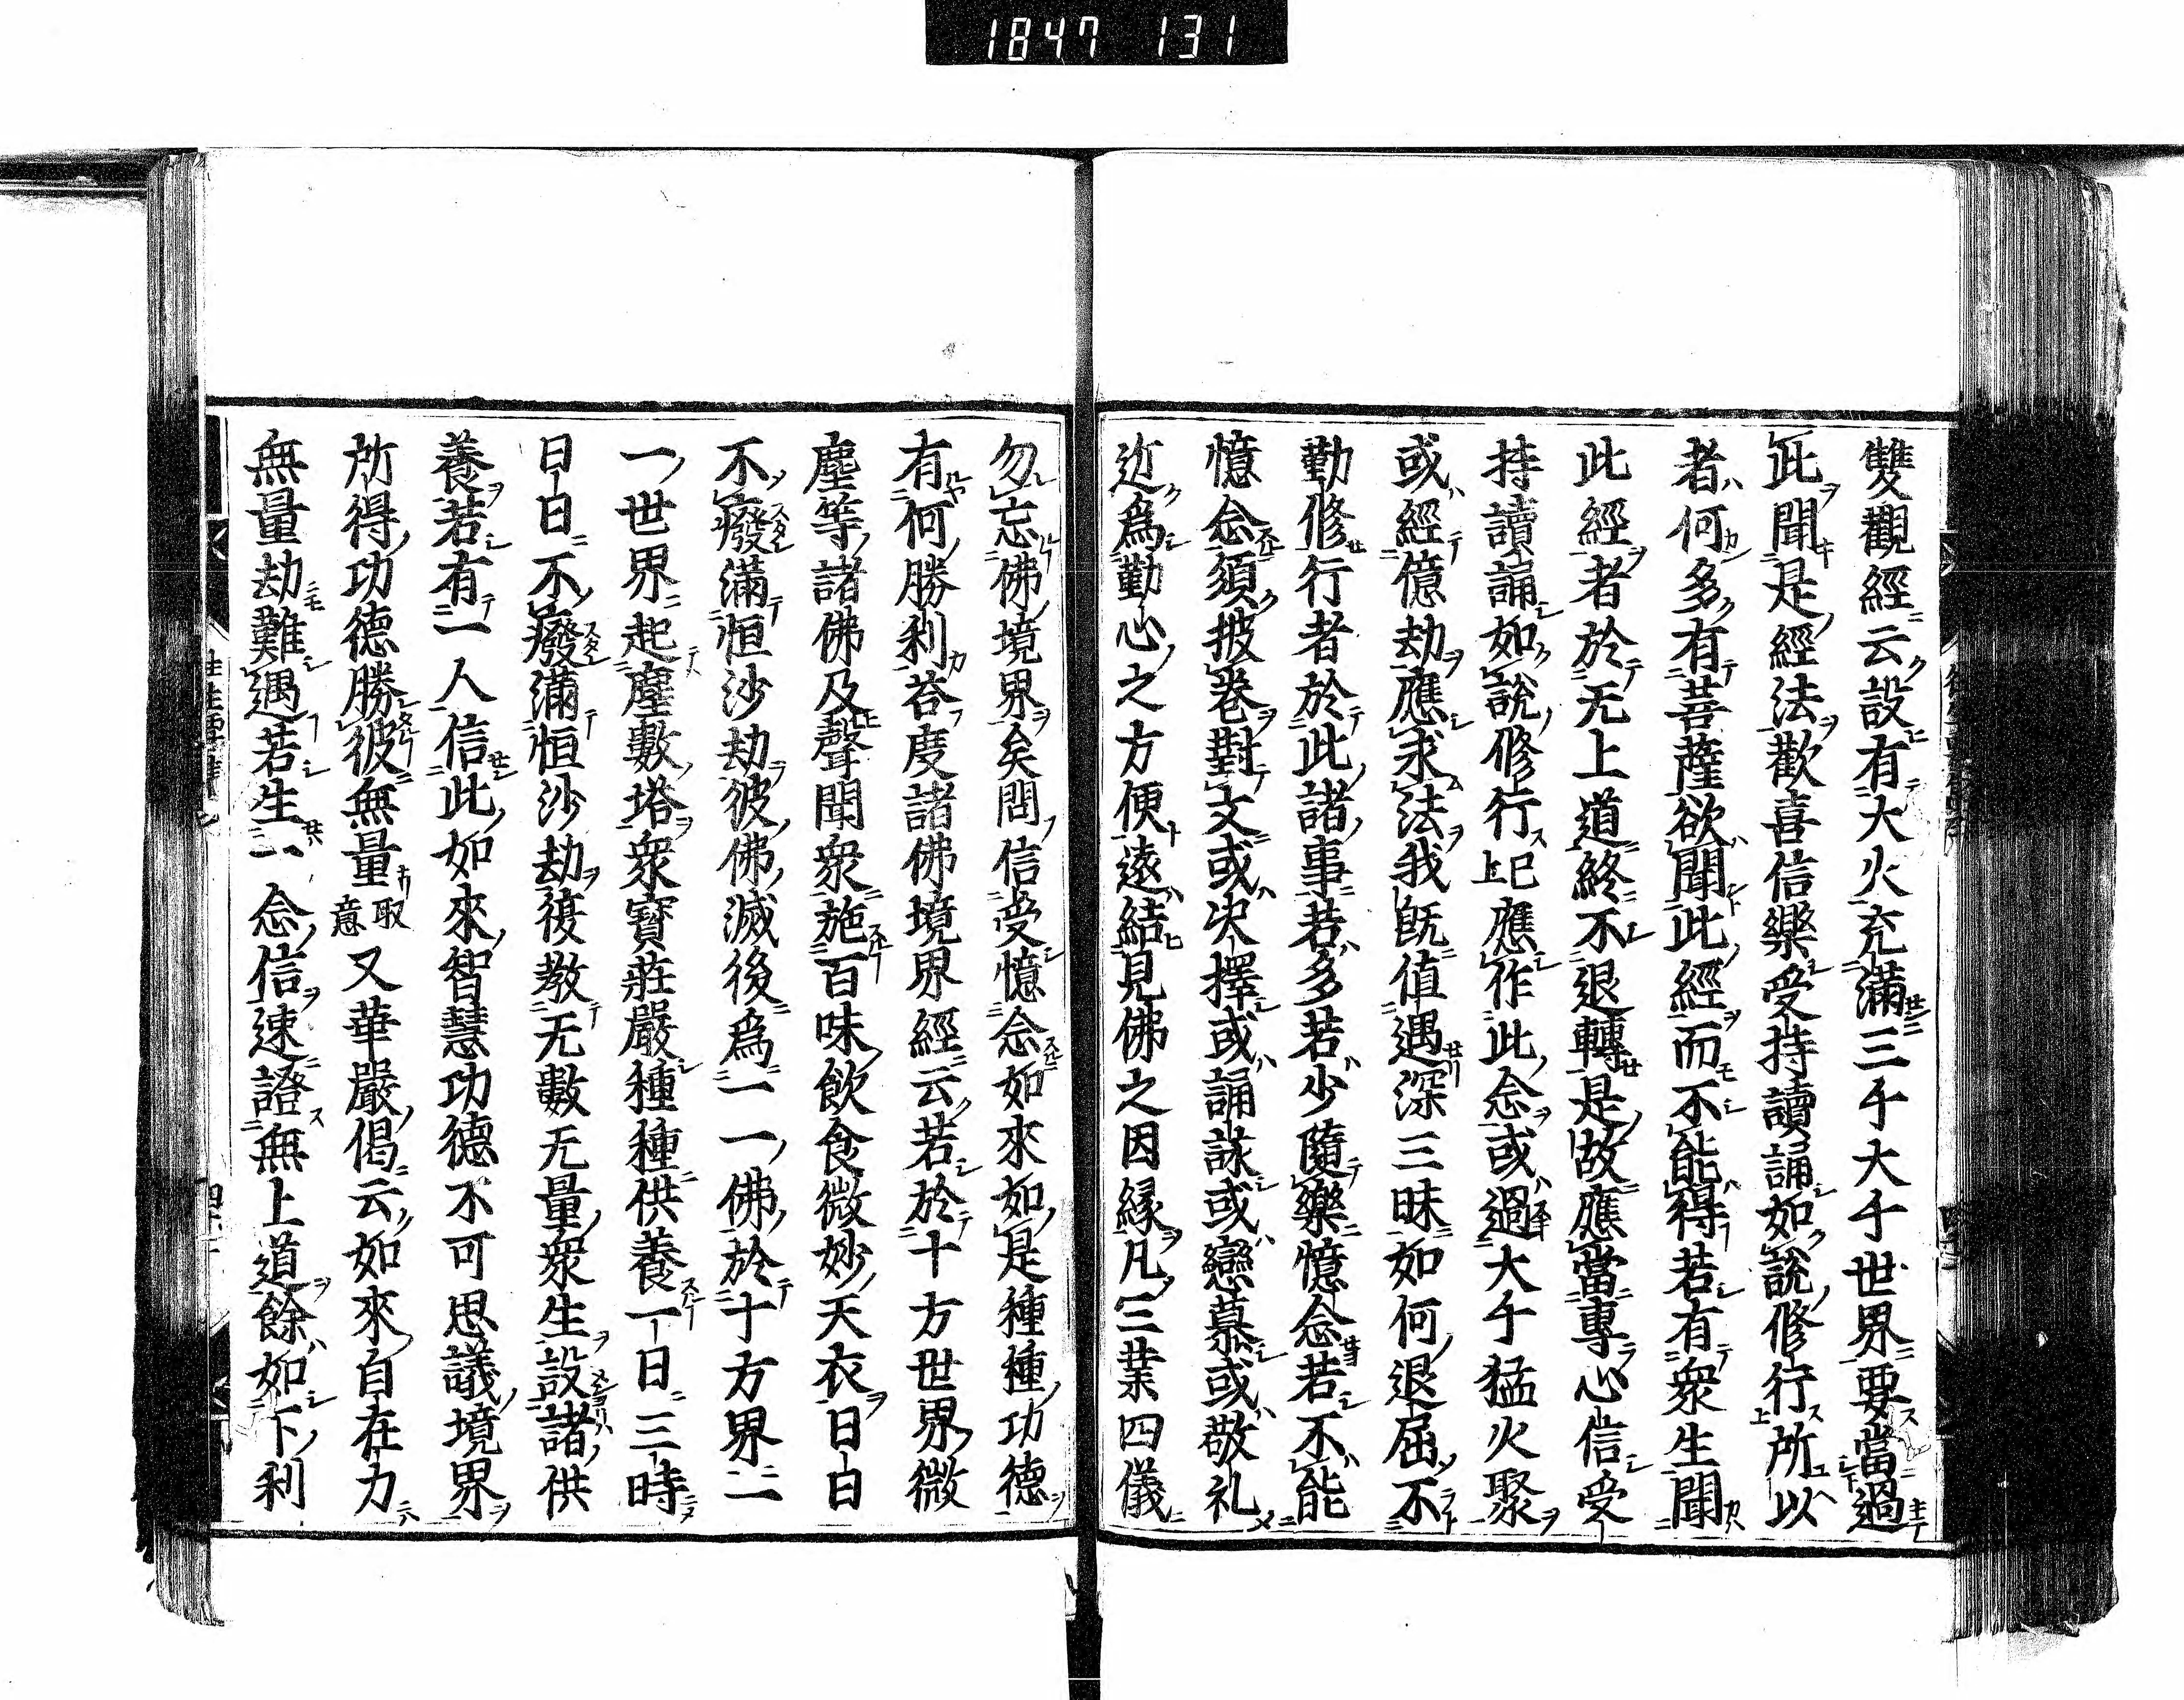 1847 131
雙觀經云設有大火充滿三千大千世界要當過
此聞是經法歡喜信樂受持讀誦如說修行所以
者何多有菩薩欲聞此經而不能得若有衆生聞
此經者於无上道終不退轉是故應當專心信受
持讀誦如說修行上已應作此念或過大千猛火聚
或經億劫應求法我既值遇深三昧如何退屈不
勤修行者於此諸事若多若少隨樂憶念若不能
憶念須披卷對文或决擇或誦詠或戀慕或敬礼
近爲勤心之方便遠結見佛之因緣凡三業四儀
勿忘佛境界矣問信受憶念如來如是種種功德
有何勝利答度諸佛境界經云若於十方世界微
塵等諸佛及聲聞衆施百味飲食微妙天衣日日
不癈滿恒沙劫彼佛滅後爲一一佛於十方界一一
世界起塵數塔衆寶莊嚴種種供養一日三時
日日不癈滿恒沙劫復教无數无量衆生設諸供
養若有一人信此如來智慧功德不可思議境界
所得功德勝彼無量取意又華嚴偈云如來自在力
無量劫難遇若生一念信速證無上道餘如下利